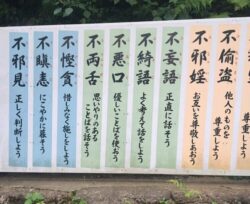 不偸盗
他人のものを
尊重しよう
不邪婬
お互いを尊敬しあおう
不妄語
正直に話そう
不綺語
よく考えて話をしよう
不悪口
優しいことばを使おう
不両舌
思いやりのある
ことばで話そう
不慳貪
惜しみなく施しをしよう
不瞋恚
にこやかに暮そう
不邪見
正しく判断しよう